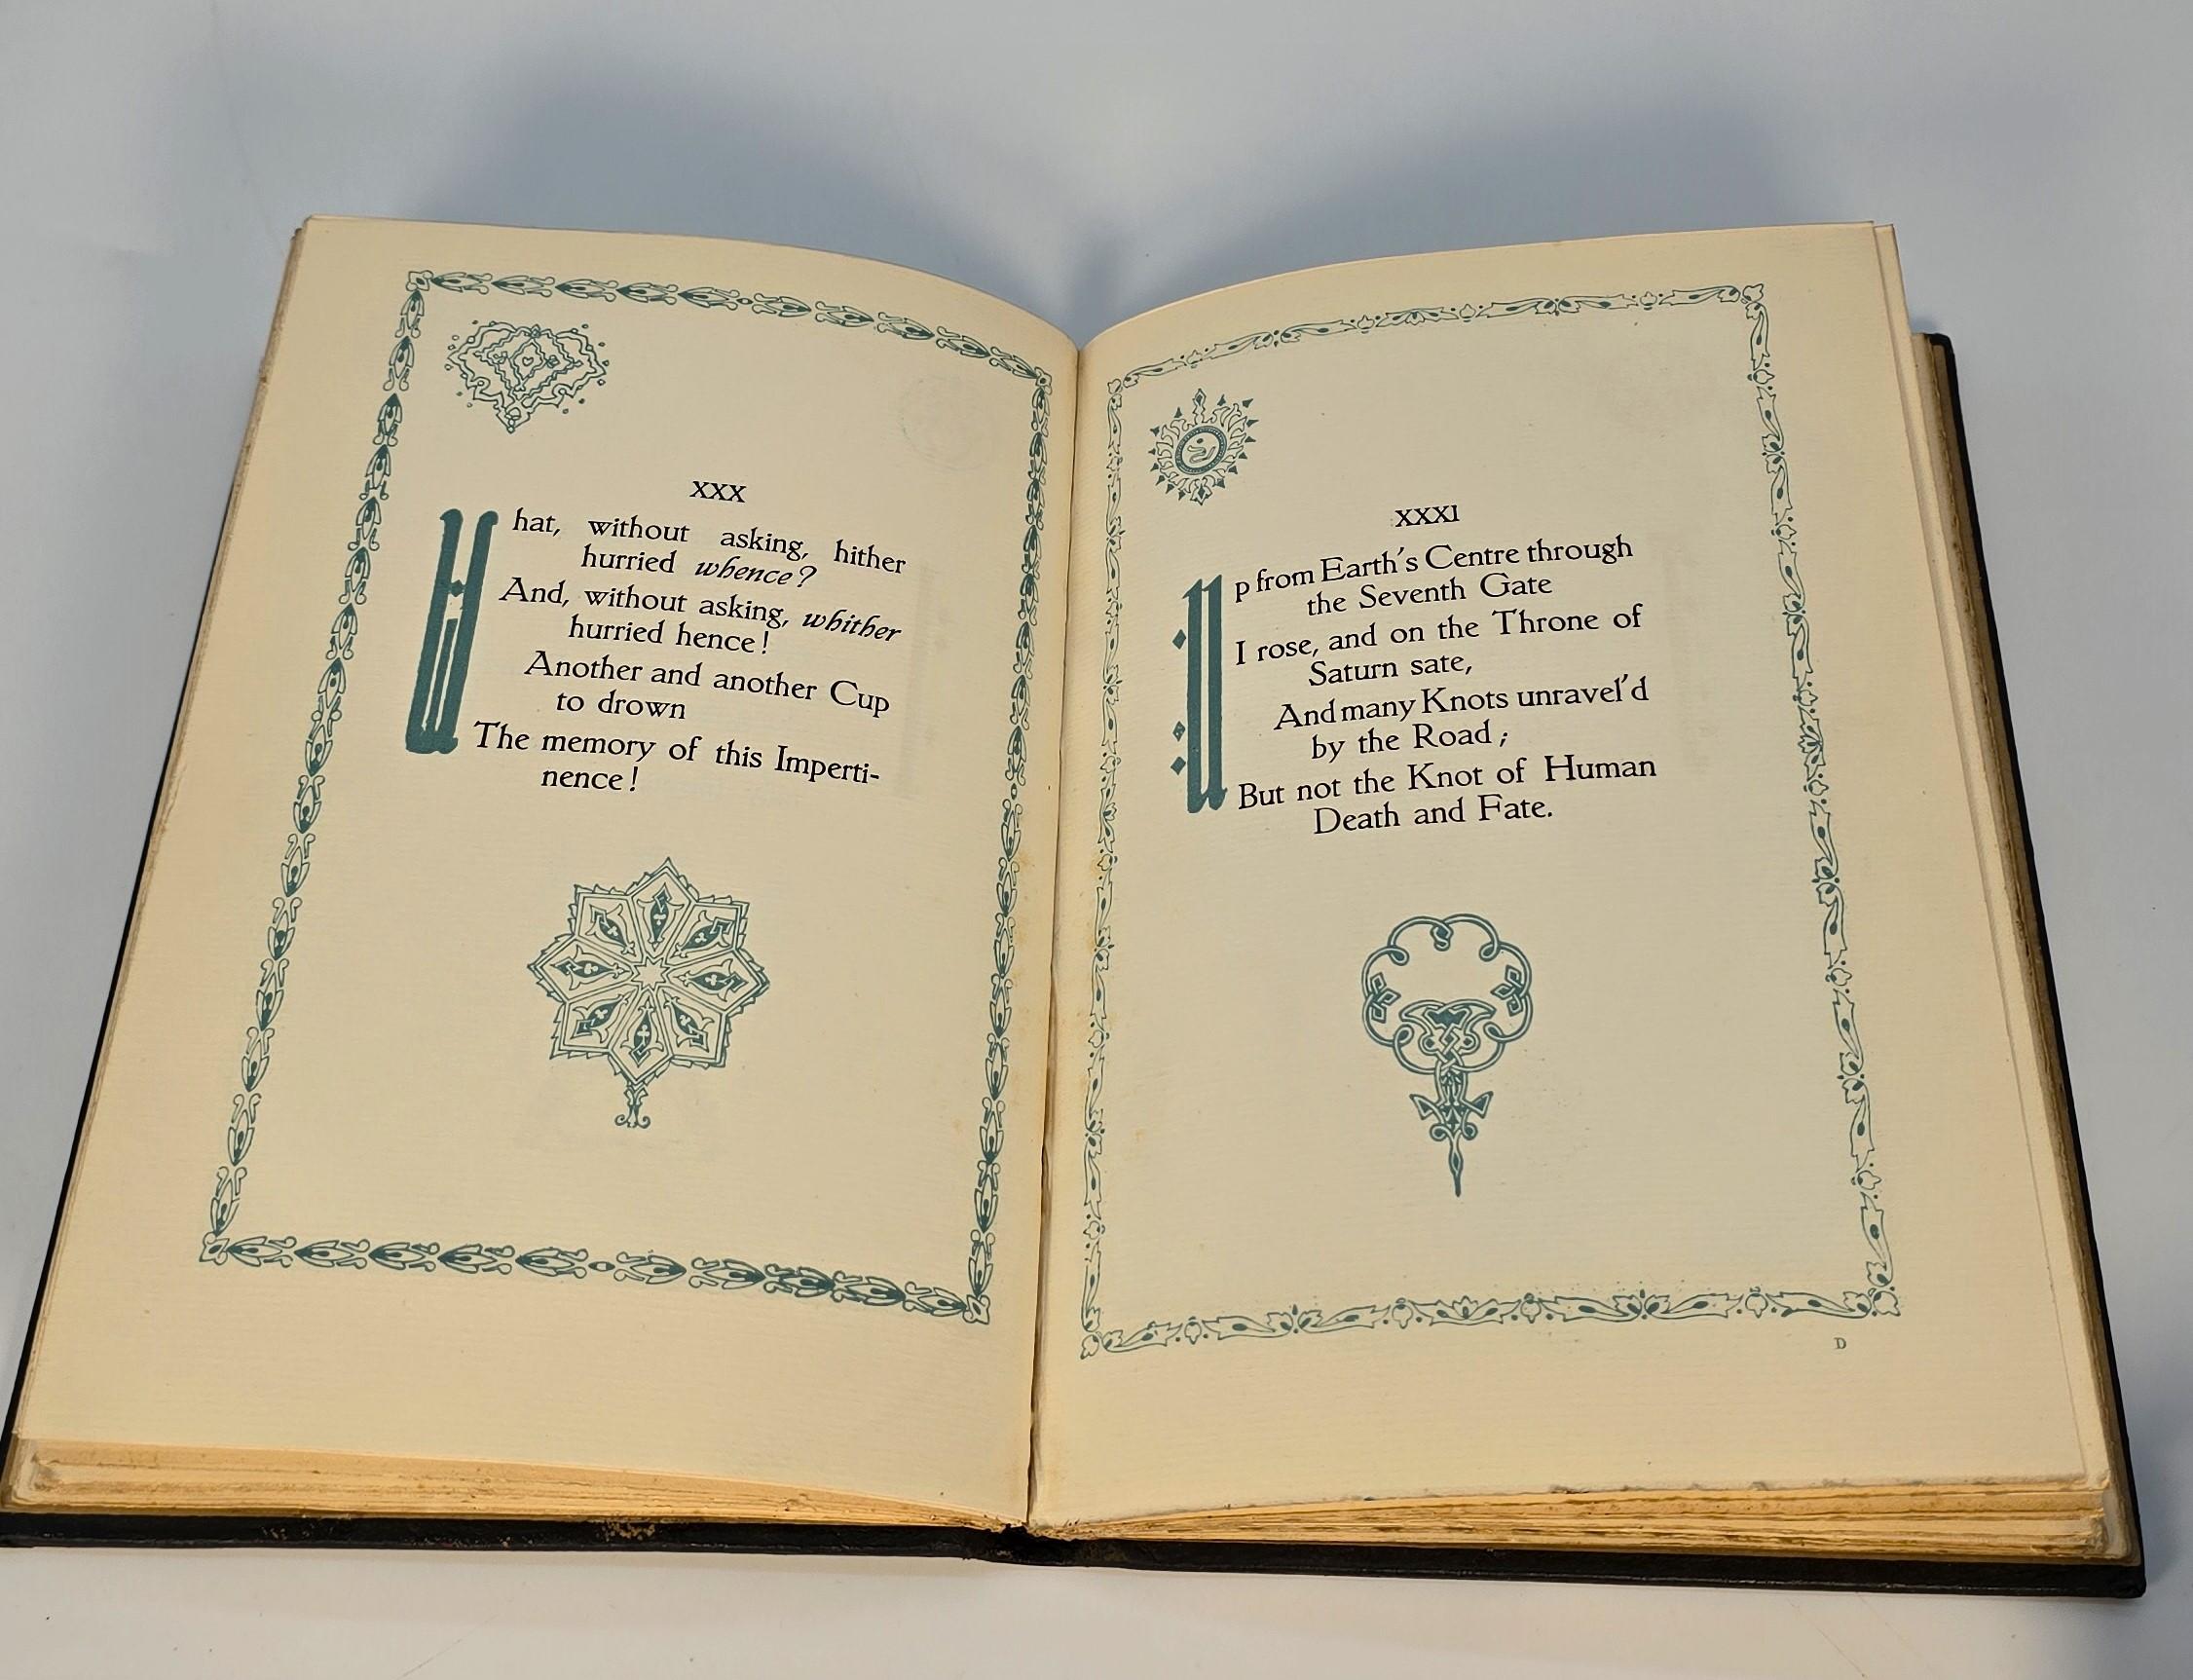 XXX
What, without asking, hither
hurried whence?
And, without asking, whither
hurried hence!
Another and another Cup
to drown
The memory of this Imperti-
nence!
XXXI
Up from Earth's Centre through
the Seventh Gate
I rose, and on the Throne of
Saturn sate,
And many Knots unravel'd
by the Road;
But not the Knot of Human
Death and Fate.
D